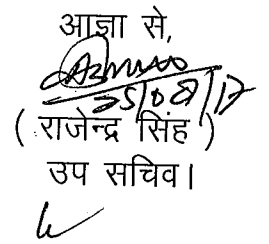 आज्ञा से,
25/08/17
( राजेन्द्र सिंह )
उप सचिव।